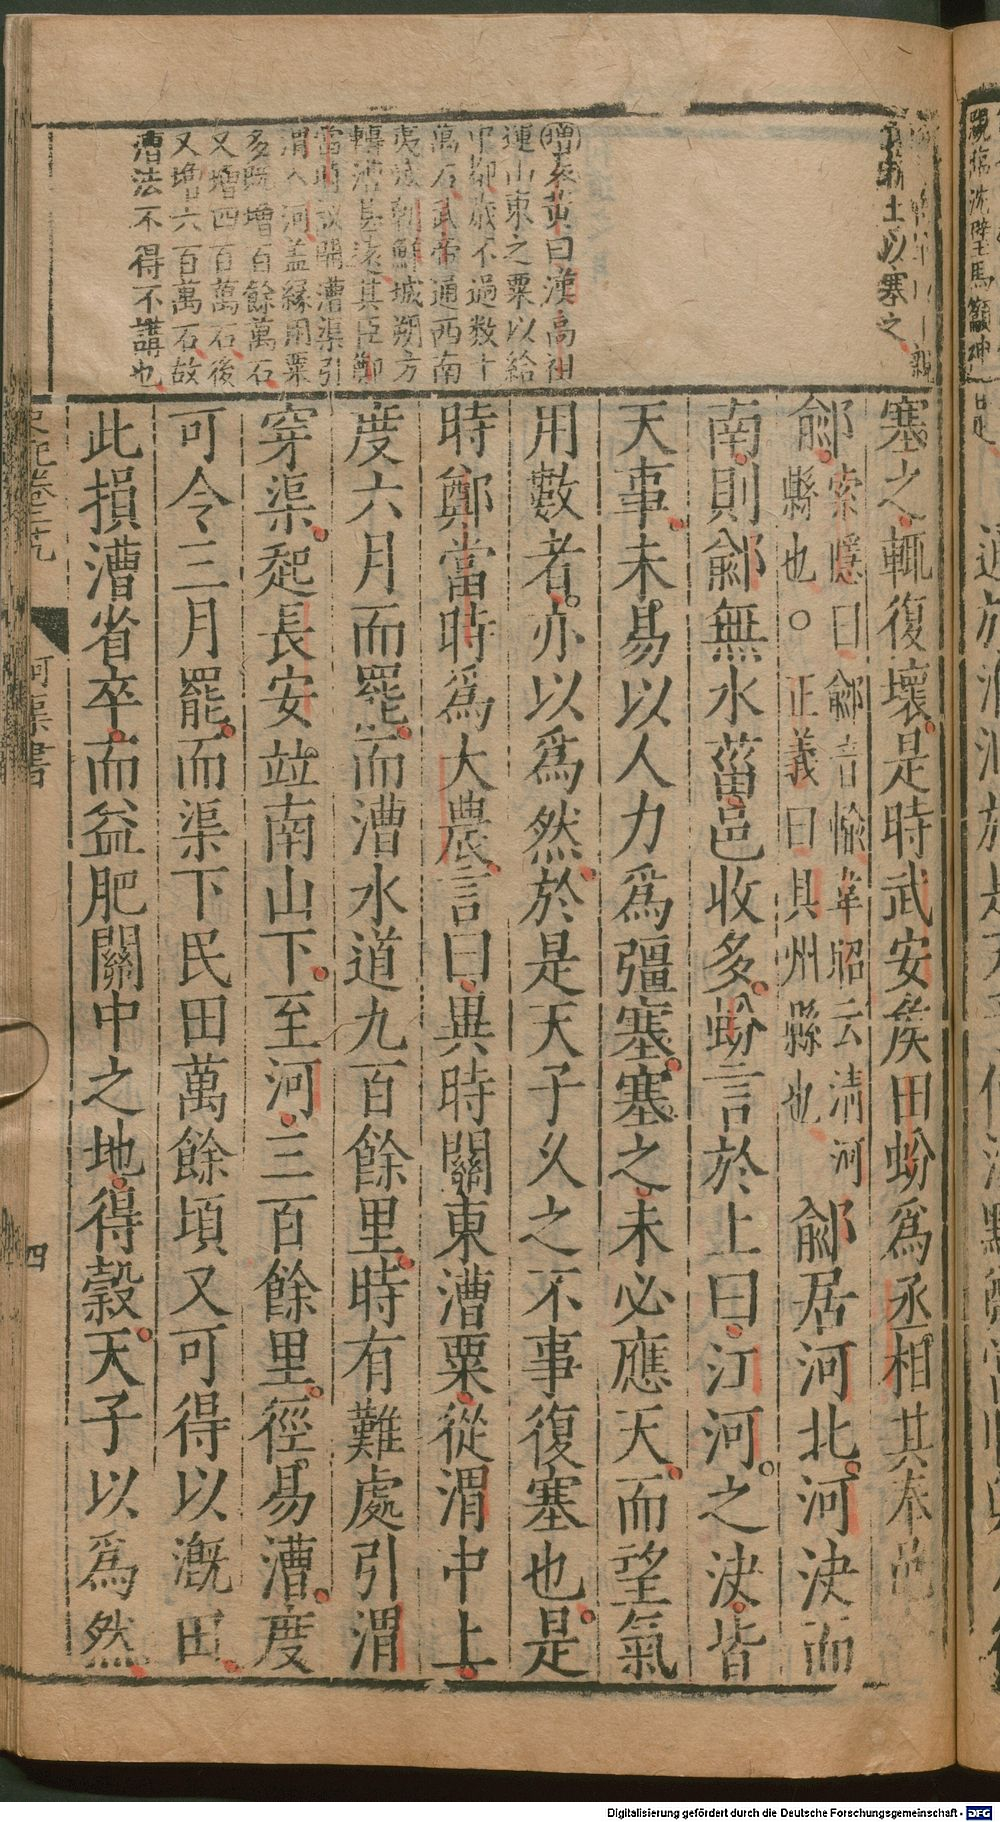 薪土以塞之
增余黃曰漢高祖
運山東之粟以給
中都歲不過數十
萬石武帝通西南
夷滅朝鮮城朔方
轉漕甚遠其臣鄭
當時議開漕渠引
渭入河蓋緣用粟
多既增百餘萬石
又增四百萬石後
又增六百萬石故
漕法不得不講也
塞之輒復壞是時武安矦田蚡爲丞相其奉邑
鄃索隱曰鄃音愉韋昭云清河
縣也○正義曰貝州縣也
鄃居河北河決而
南則鄃無水菑邑收多蚡言於上曰江河之決皆
天事未易以人力爲彊塞塞之未必應天而望氣
用數者亦以爲然於是天子久之不事復塞也是
時鄭當時爲大農言曰異時關東漕粟從渭中上
度六月而罷而漕水道九百餘里時有難處引渭
穿渠起長安竝南山下至河三百餘里徑易漕度
可令三月罷而渠下民田萬餘頃又可得以溉田
此損漕省卒而益肥關中之地得穀天子以爲然
河渠書
四
Digitalisierung gefördert durch die Deutsche Forschungsgemeinschaft - DFG